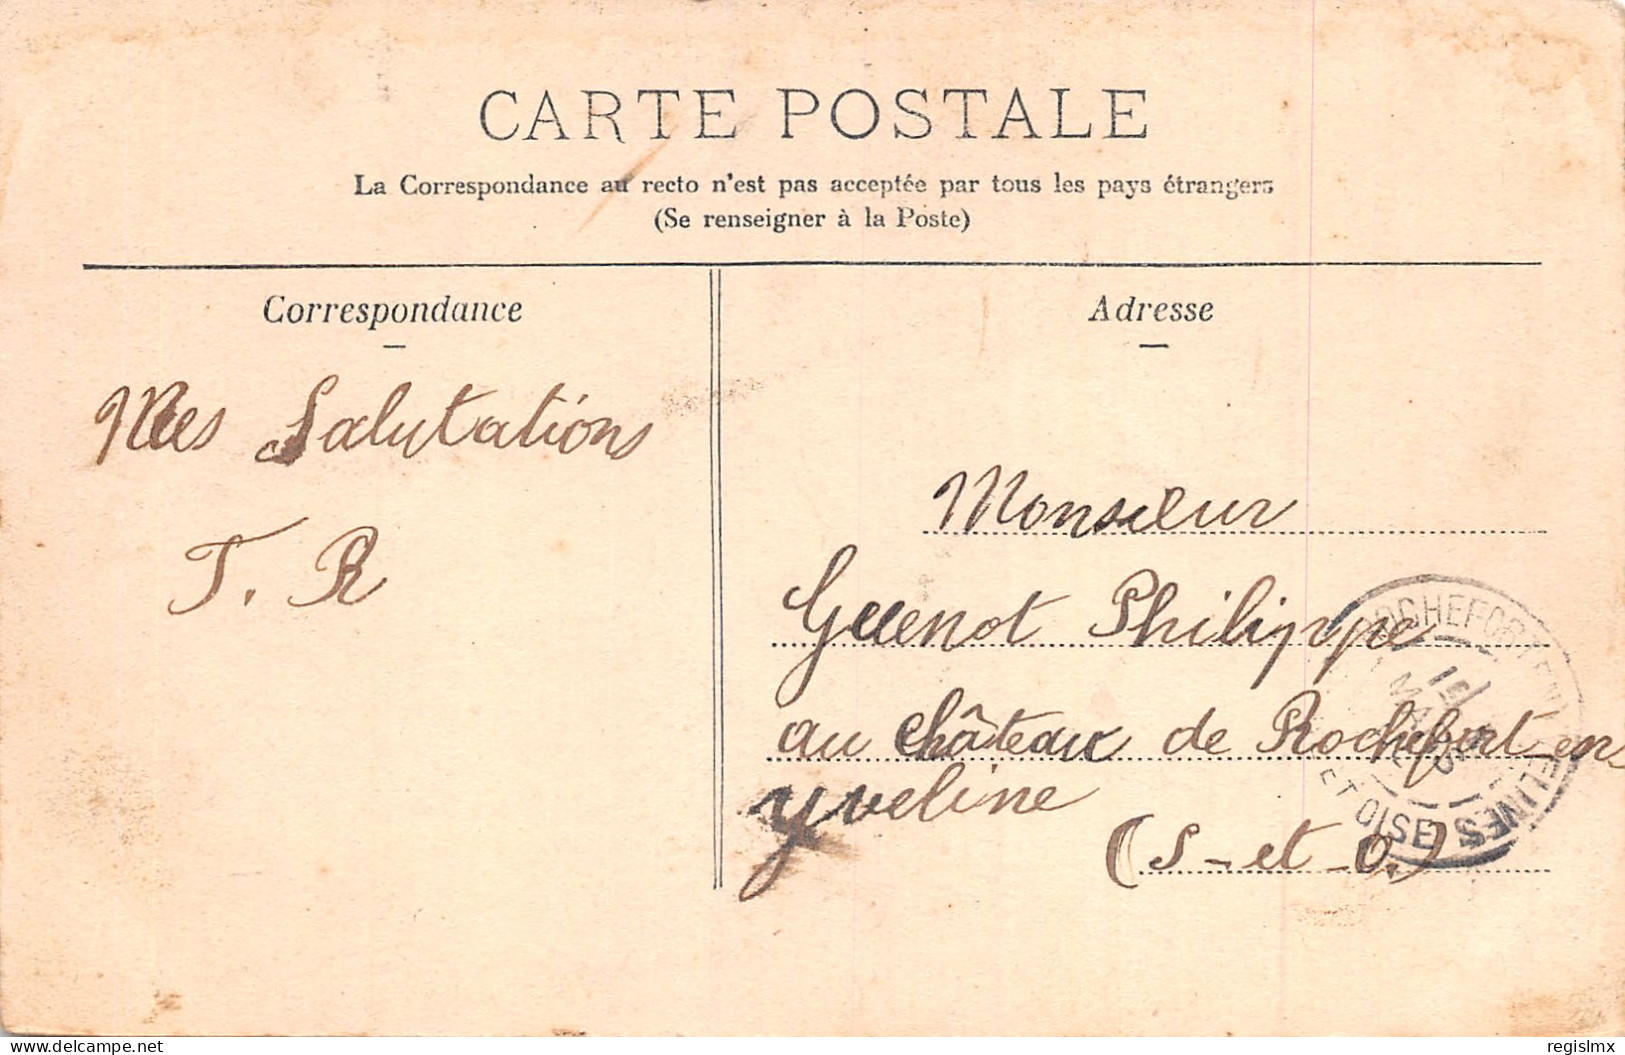 CARTE POSTALE
La Correspondance au recto n'est pas acceptée par tous les pays étrangers
(Se renseigner à la Poste)
Correspondance
Mes Salutations
T. R
Adresse
Monsieur
Guenot Philippe
au château de Rochefort en
yveline
(S-et-O.)
ROCHEFORT EN YVELINES
ET OISE
delcampe.net
regislmx